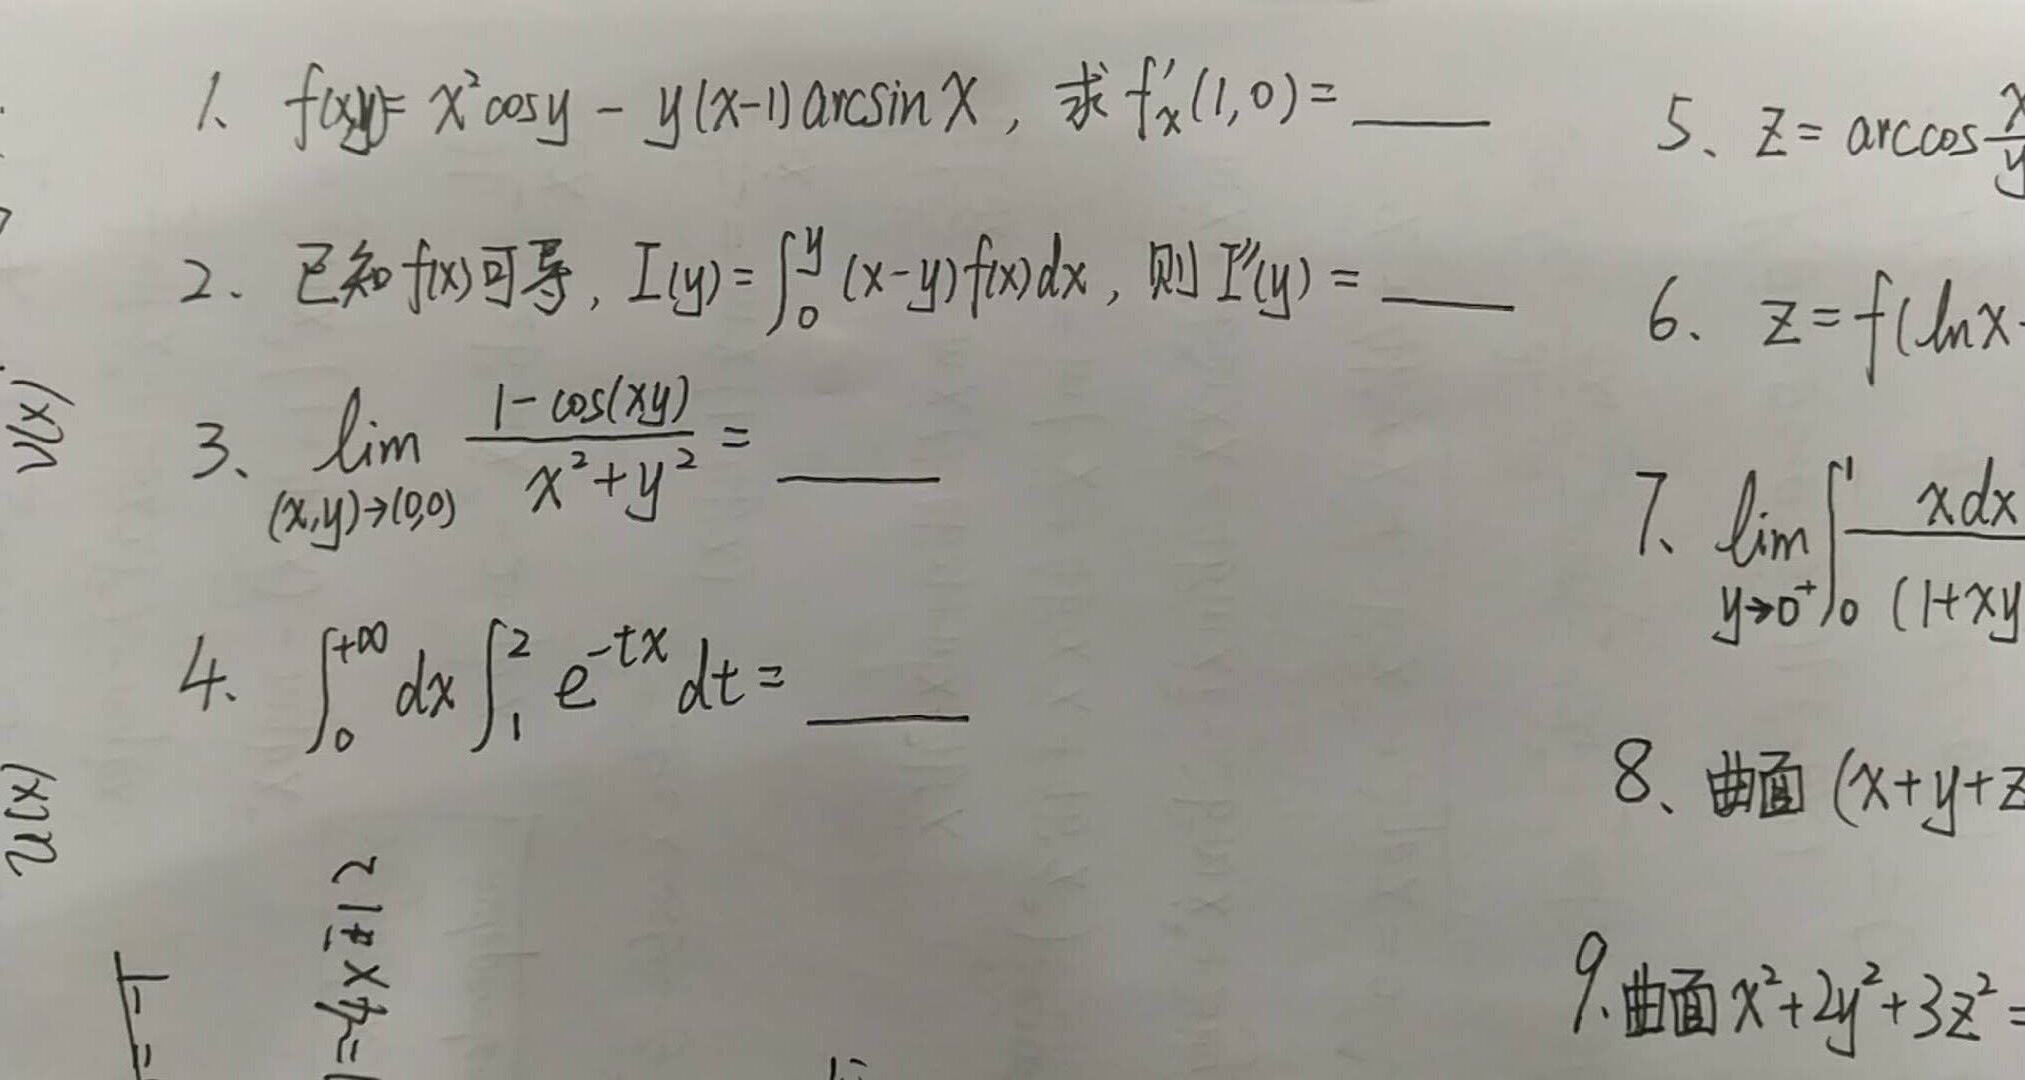 1、f(x,y)= x²cosy - y(x-1)arcsinx，求f'ₓ(1,0)=____
2、已知f(x)可导，I(y)=∫₀^y (x-y)f(x)dx，则I''(y)=____
3、lim_{(x,y)→(0,0)} (1-cos(xy))/(x²+y²) = ____
4、∫₀^{+∞} dx ∫₁² e^{-tx} dt = ____
5、z= arccos x/y
6、z=f(lnx
7、lim_{y→0⁺} ∫₀¹ xdx/(1+xy
8、曲面 (x+y+z
9、曲面 x²+2y²+3z²=
v(x)
u(x)